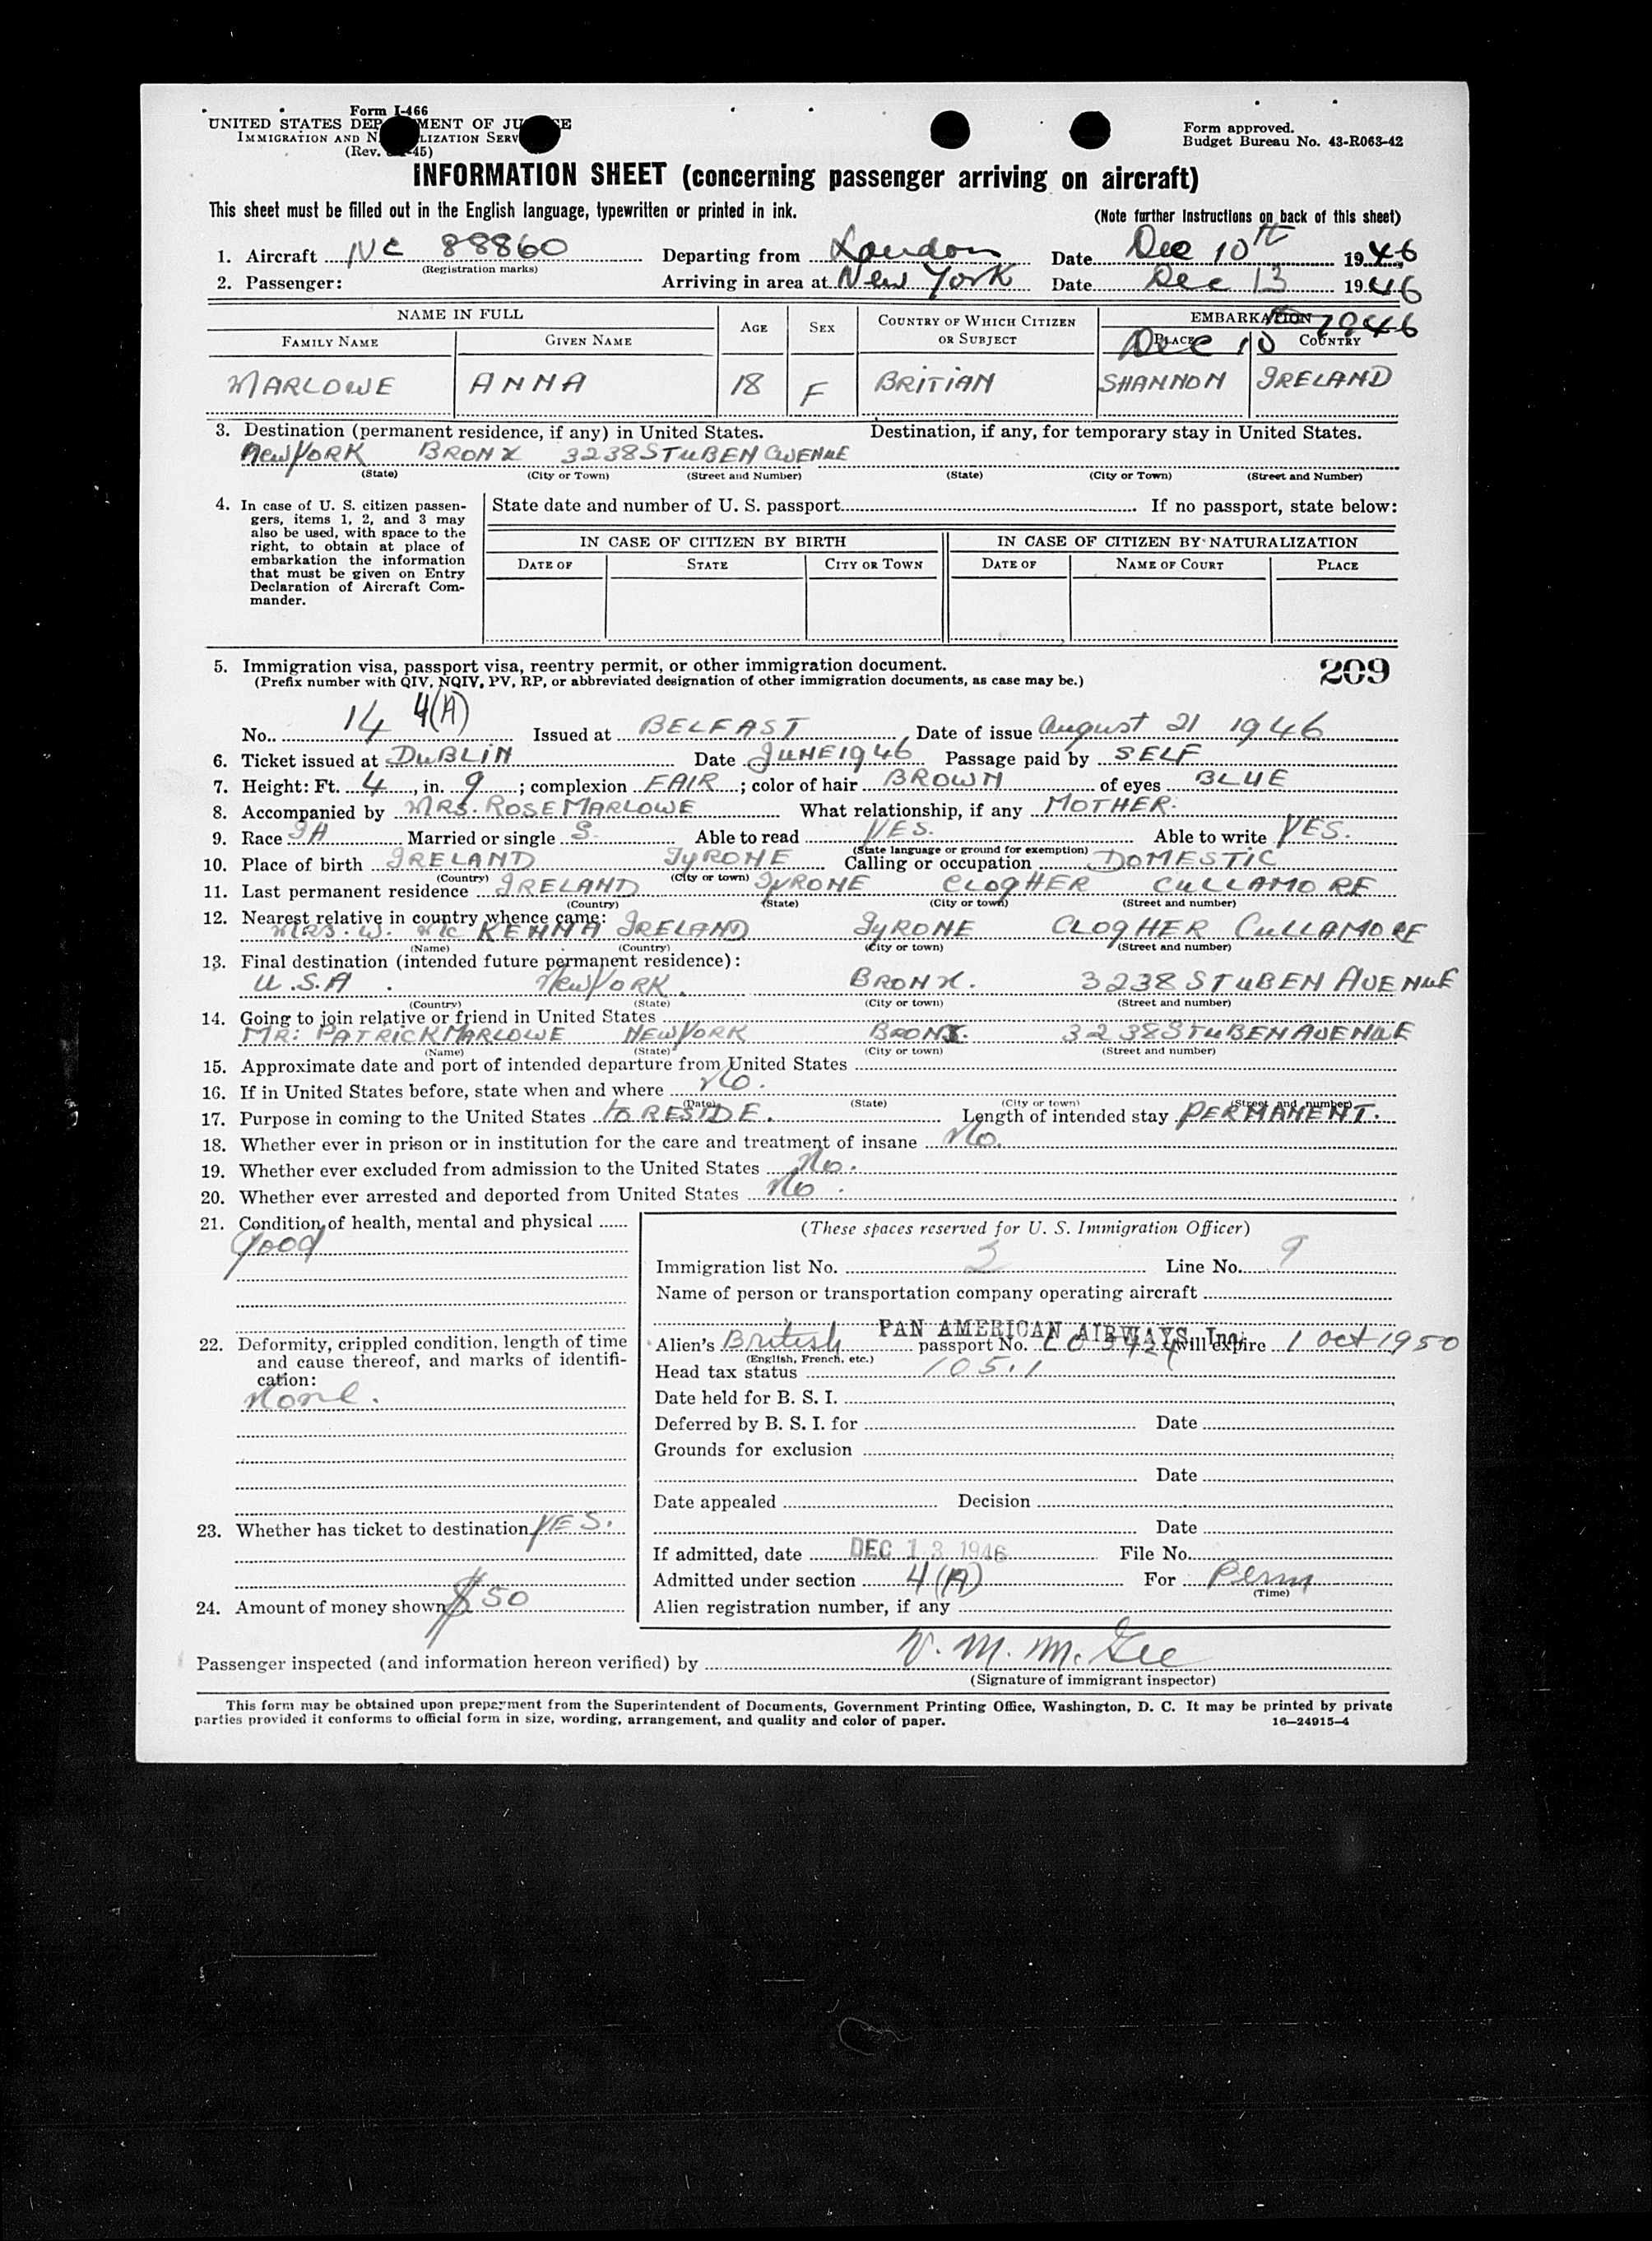 Form I-466
UNITED STATES DEPARTMENT OF JUSTICE
IMMIGRATION AND NATURALIZATION SERVICE
(Rev. 45)
Form approved.
Budget Bureau No. 43-R063-42
INFORMATION SHEET (concerning passenger arriving on aircraft)
This sheet must be filled out in the English language, typewritten or printed in ink.
(Note further instructions on back of this sheet)
1. Aircraft NC 88860 Departing from London Date Dec 10th 1946
(Registration marks)
2. Passenger: Arriving in area at New York Date Dec 13 1946
NAME IN FULL AGE SEX COUNTRY OF WHICH CITIZEN OR SUBJECT EMBARKATION
Dec 10 1946
FAMILY NAME GIVEN NAME PLACE COUNTRY
MARLOWE ANNA 18 F BRITIAN SHANNON IRELAND
3. Destination (permanent residence, if any) in United States. Destination, if any, for temporary stay in United States.
New YORK BRONX 3238 STUBEN AVENUE
(State) (City or Town) (Street and Number) (State) (City or Town) (Street and Number)
4. In case of U. S. citizen passengers, items 1, 2, and 3 may also be used, with space to the right, to obtain at place of embarkation the information that must be given on Entry Declaration of Aircraft Commander.
State date and number of U. S. passport If no passport, state below:
IN CASE OF CITIZEN BY BIRTH IN CASE OF CITIZEN BY NATURALIZATION
DATE OF STATE CITY OR TOWN DATE OF NAME OF COURT PLACE
5. Immigration visa, passport visa, reentry permit, or other immigration document.
209
(Prefix number with QIV, NQIV, PV, RP, or abbreviated designation of other immigration documents, as case may be.)
No. 14 4(A) Issued at BELFAST Date of issue August 21 1946
6. Ticket issued at DUBLIN Date JUNE 1946 Passage paid by SELF
7. Height: Ft. 4, in. 9; complexion FAIR; color of hair BROWN of eyes BLUE
8. Accompanied by MRS. ROSE MARLOWE What relationship, if any MOTHER.
9. Race Married or single S. Able to read YES. Able to write YES.
(State language or ground for exemption)
10. Place of birth IRELAND TYRONE Calling or occupation DOMESTIC
(Country) (City or town)
11. Last permanent residence IRELAND TYRONE CLOGHER CULLAMORE
(Country) (State) (City or town) (Street and number)
12. Nearest relative in country whence came:
MRS. W. Mc KENNA IRELAND TYRONE CLOGHER CULLAMORE
(Name) (Country) (City or town) (Street and number)
13. Final destination (intended future permanent residence):
U.S.A. New YORK. BRONX. 3238 STUBEN AVENUE
(Country) (State) (City or town) (Street and number)
14. Going to join relative or friend in United States
MR: PATRICK MARLOWE NEW YORK BRONX. 3238 STUBEN AVENUE
(Name) (State) (City or town) (Street and number)
15. Approximate date and port of intended departure from United States
16. If in United States before, state when and where No.
(Date) (State) (City or town) (Street and number)
17. Purpose in coming to the United States to RESIDE. Length of intended stay PERMANENT.
18. Whether ever in prison or in institution for the care and treatment of insane No.
19. Whether ever excluded from admission to the United States No.
20. Whether ever arrested and deported from United States No.
21. Condition of health, mental and physical
Good
22. Deformity, crippled condition, length of time and cause thereof, and marks of identification:
None.
23. Whether has ticket to destination YES.
24. Amount of money shown $50
(These spaces reserved for U. S. Immigration Officer)
Immigration list No. 3 Line No. 9
Name of person or transportation company operating aircraft
PAN AMERICAN AIRWAYS, Inc.
Alien's British passport No. will expire 1 Oct 1950
(English, French, etc.)
Head tax status 105.1
Date held for B. S. I.
Deferred by B. S. I. for Date
Grounds for exclusion
Date
Date appealed Decision
Date
If admitted, date DEC 13 1946 File No.
Admitted under section 4(A) For Perm
(Time)
Alien registration number, if any
Passenger inspected (and information hereon verified) by V. M. McGee
(Signature of immigrant inspector)
This form may be obtained upon prepayment from the Superintendent of Documents, Government Printing Office, Washington, D. C. It may be printed by private
parties provided it conforms to official form in size, wording, arrangement, and quality and color of paper. 16—24915-4